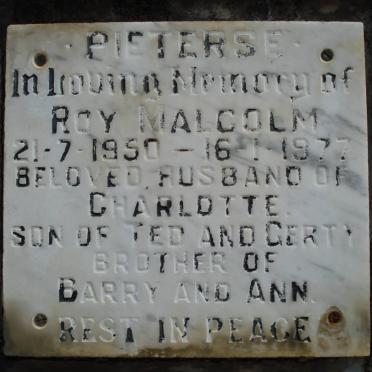 PIETERSE
In Loving Memory of
ROY MALCOLM
21-7-1950 – 16-1-1977
BELOVED HUSBAND OF
CHARLOTTE.
SON OF TED AND GERTY
BROTHER OF
BARRY AND ANN.
REST IN PEACE